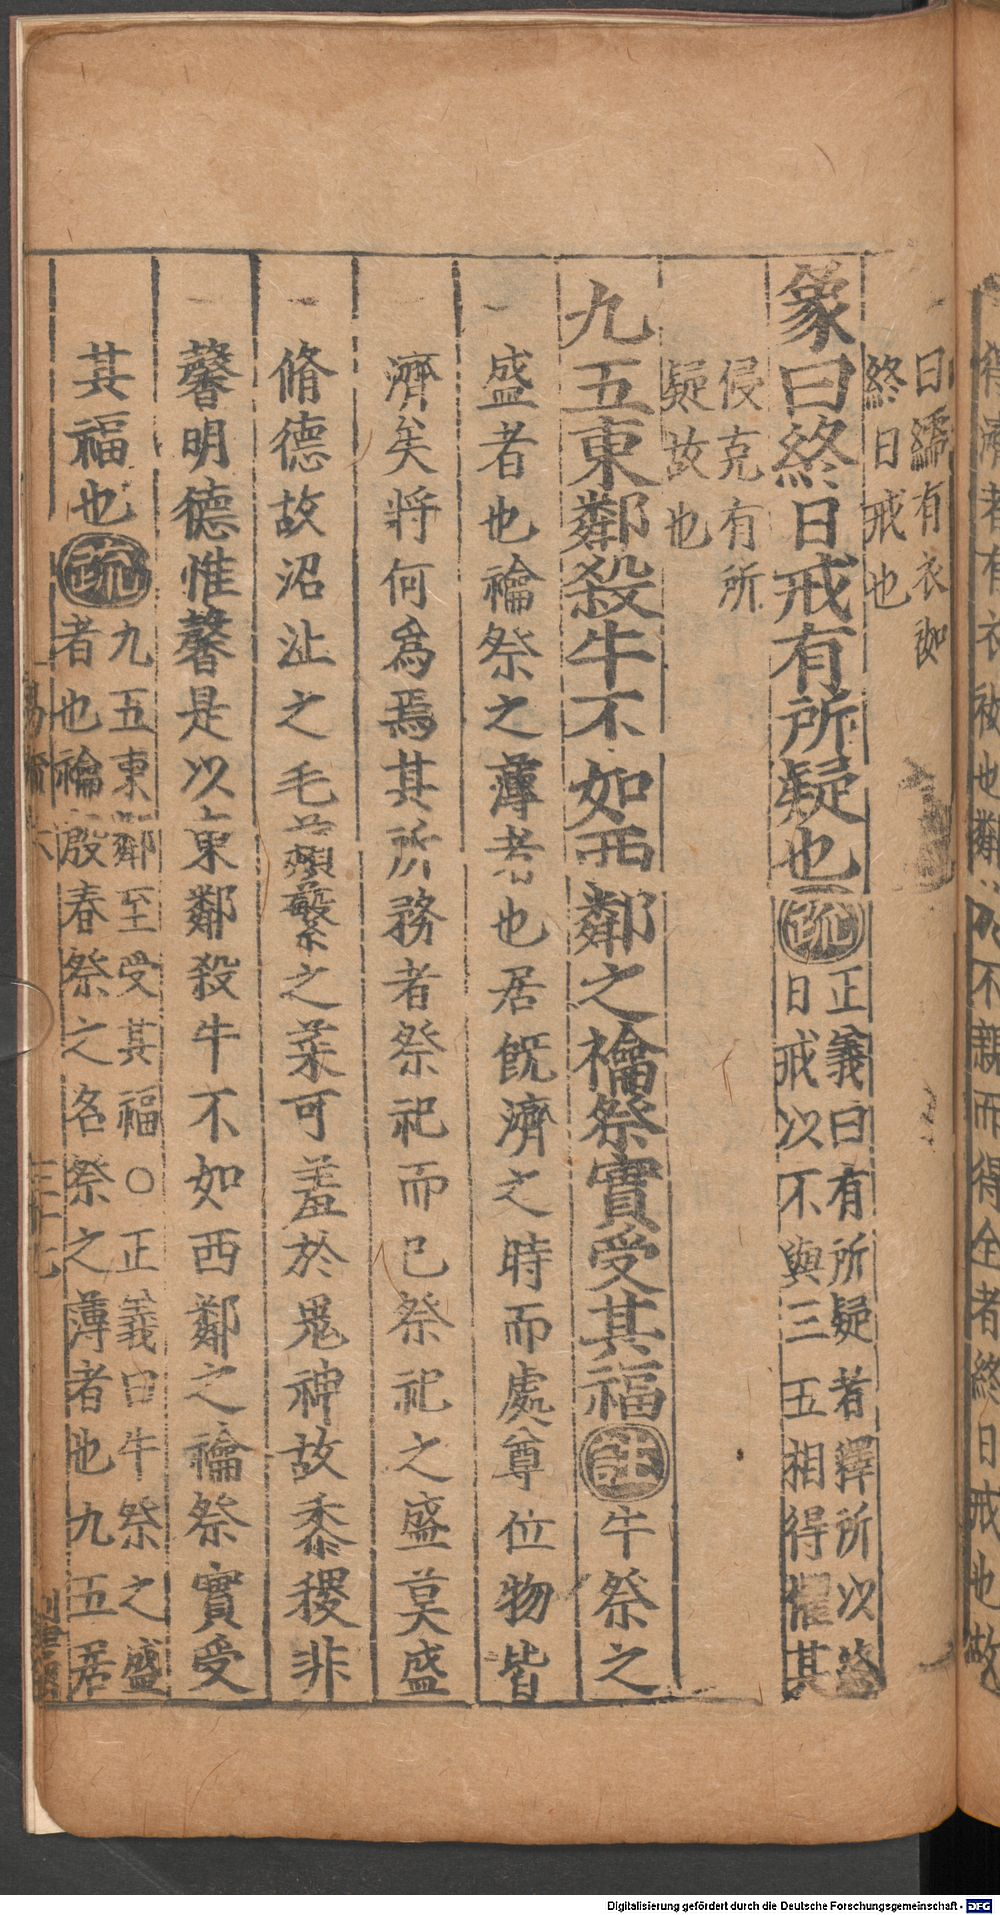 曰繻有衣袽
終日戒也
象曰終日戒有所疑也疏
正義曰有所疑者釋所以終
日戒以不與三五相得懼其
侵克有所
疑故也
九五東鄰殺牛不如西鄰之禴祭實受其福註牛祭之
盛者也禴祭之薄者也居旣濟之時而處尊位物皆
濟矣將何爲焉其所務者祭祀而已祭祀之盛莫盛
脩德故沼沚之毛蘋蘩之菜可羞於鬼神故黍稷非
馨明德惟馨是以東鄰殺牛不如西鄰之禴祭實受
其福也疏
九五東鄰至受其福○正義曰牛祭之盛
者也禴殷春祭之名祭之薄者也九五居
易疏六
三十七
有衣袽也鄰 不親而得全者終日戒也故
Digitalisierung gefördert durch die Deutsche Forschungsgemeinschaft - DFG